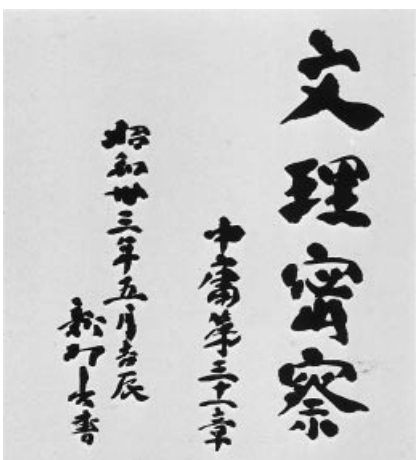 文理密察
中庸第三十一章
昭和卅三年五月吉辰